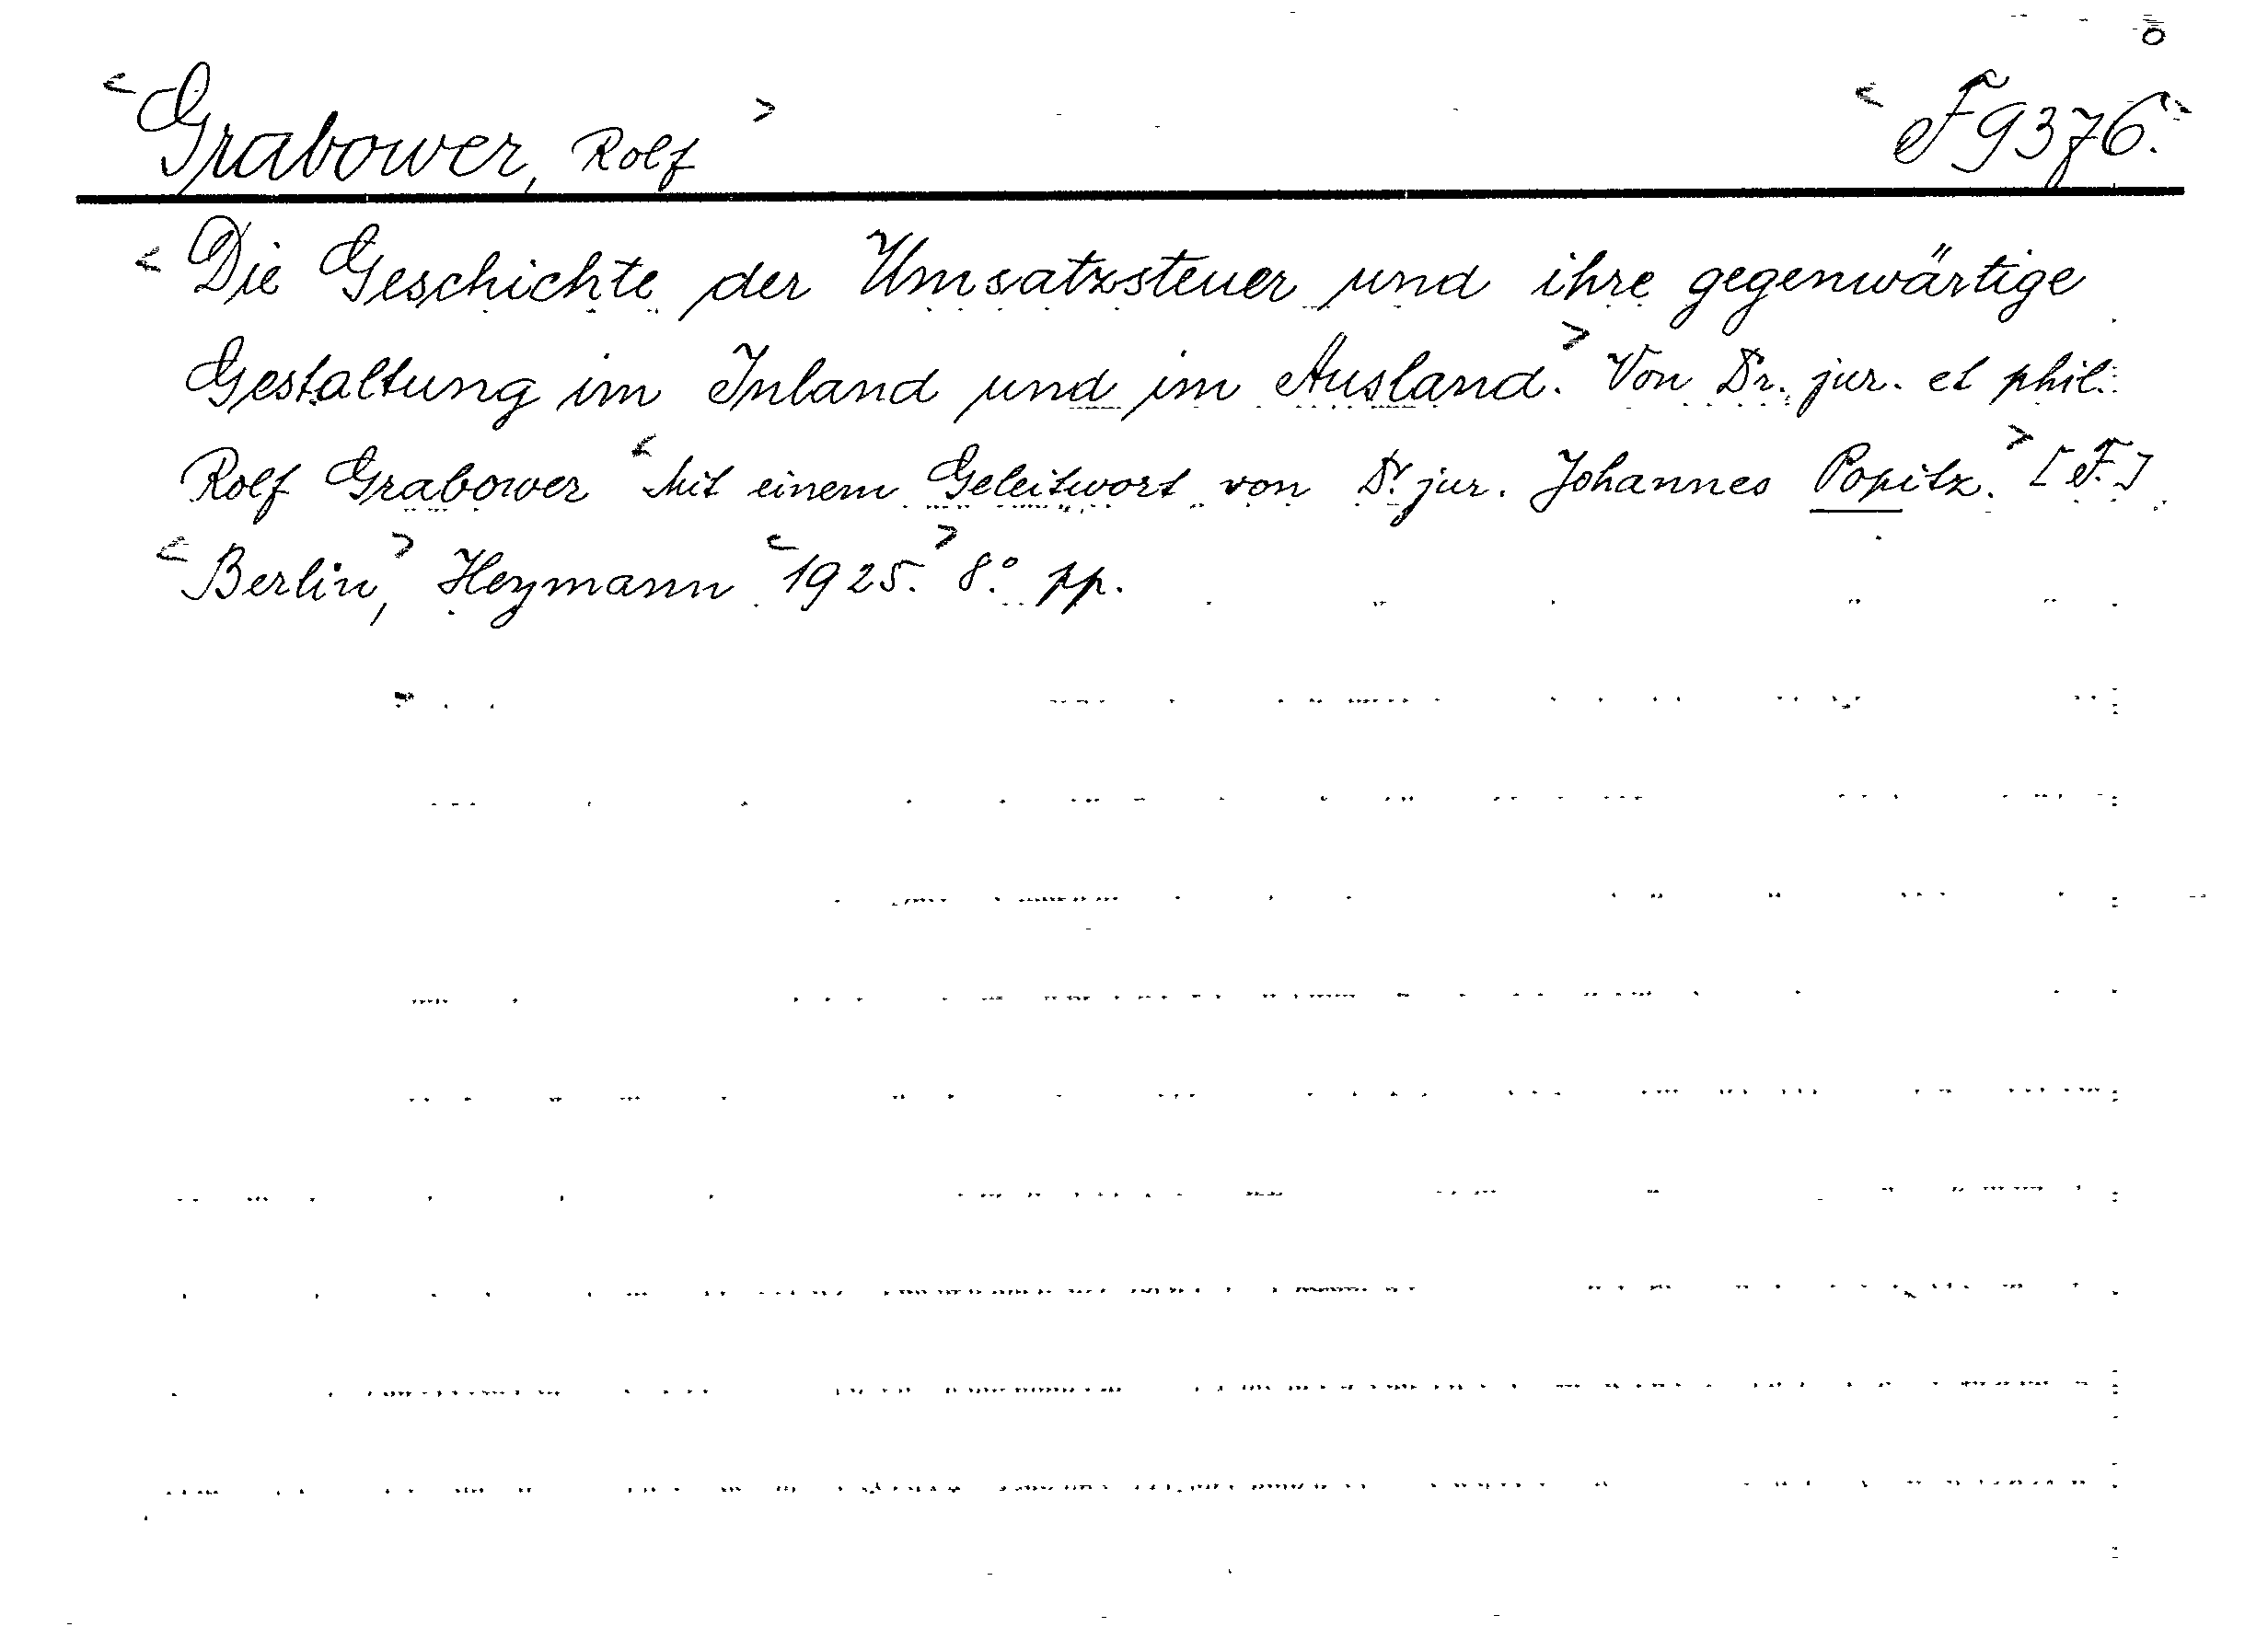 <Grabower, Rolf> <F 9376.>
<Die Geschichte der Umsatzsteuer und ihre gegenwärtige
Gestaltung im Inland und im Ausland.> Von Dr. jur. et phil.
Rolf Grabower <Mit einem Geleitwort von Dr. jur. Johannes Popitz.> [F.]
<Berlin,> Heymann <1925.> 8° pp.